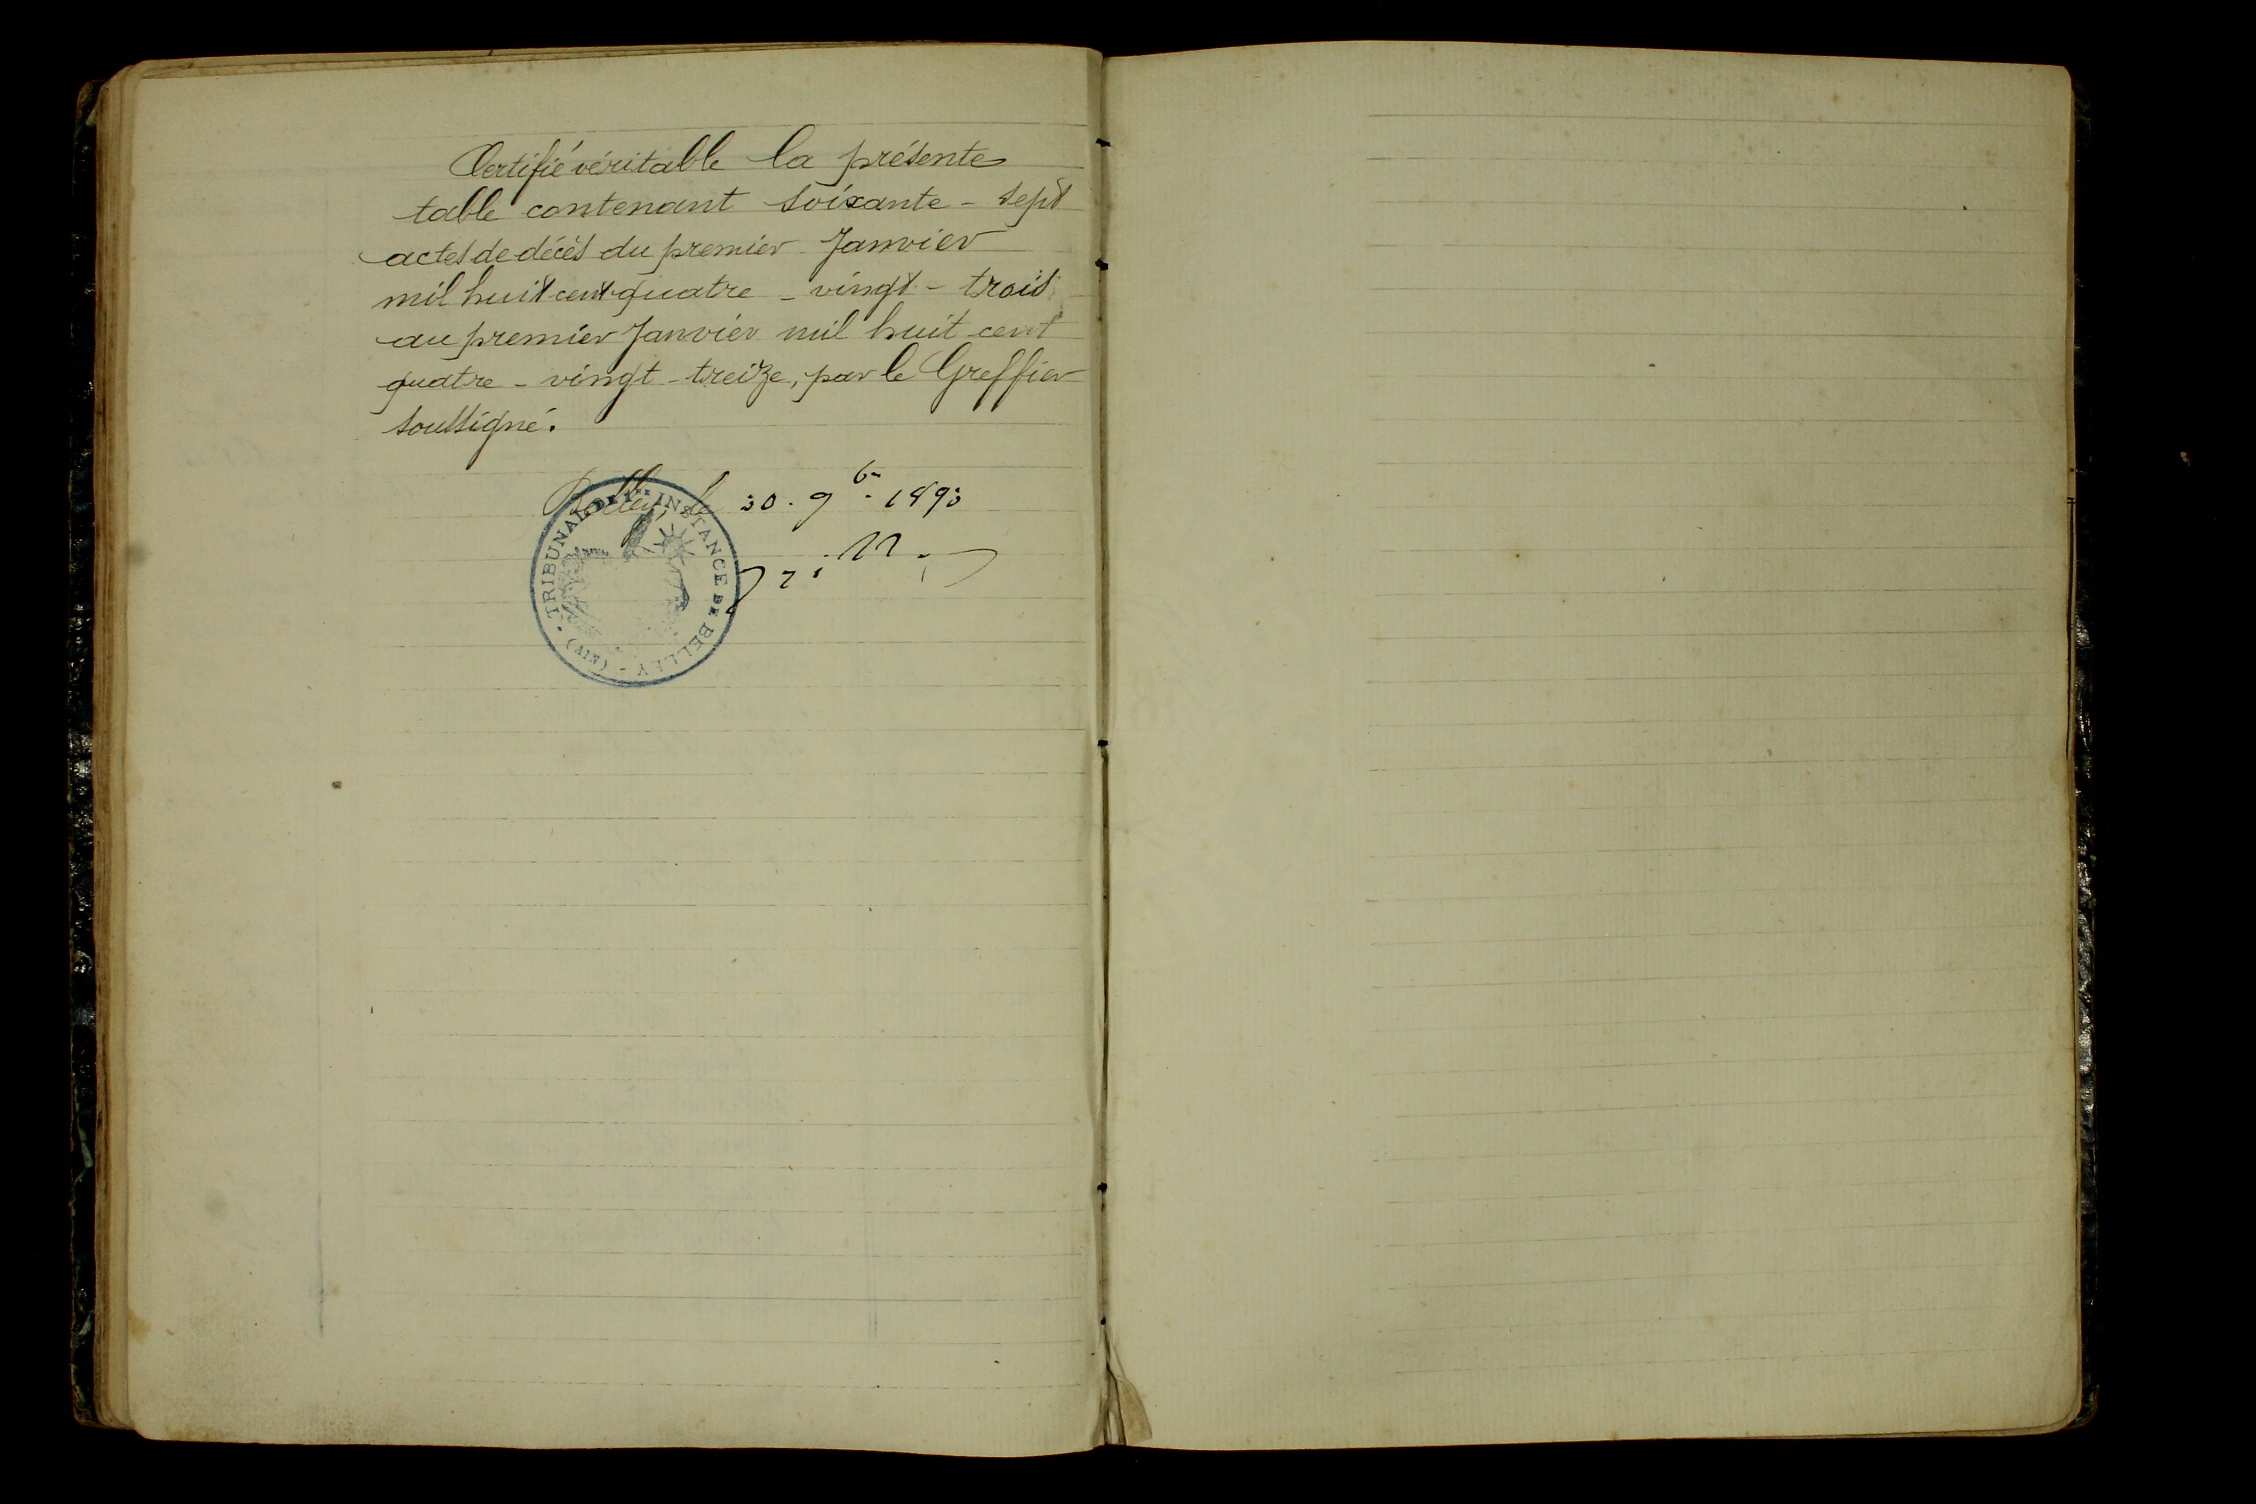 Certifié véritable la présente
table contenant soixante - sept
actes de décès du premier Janvier
mil huit cent quatre - vingt - trois
au premier Janvier mil huit cent
quatre - vingt - treize, par le Greffier
soussigné.
Belley, le 30. 9bre. 1893
TRIBUNAL DE 1ère INSTANCE DE BELLEY - (AIN) -